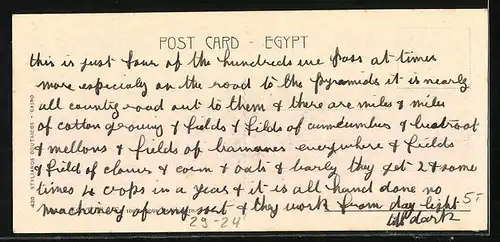 POST CARD - EGYPT
this is just four of the hundreds we pass at times
more especialy on the road to the pyramids it is nearly
all country road out to them & there are miles & miles
of cotton growing & fields & filds of cumcumbers & beatroot
& mellons & fields of bananes everywhere & fields
& field of clover & corn & oats & barly they get 2 & some
times 4 crops in a year & it is all hand done no
machinery of any sort & they work from day light
till dark
5-
29-24
420 STYLIANOS COUTSICOS - CAIRO